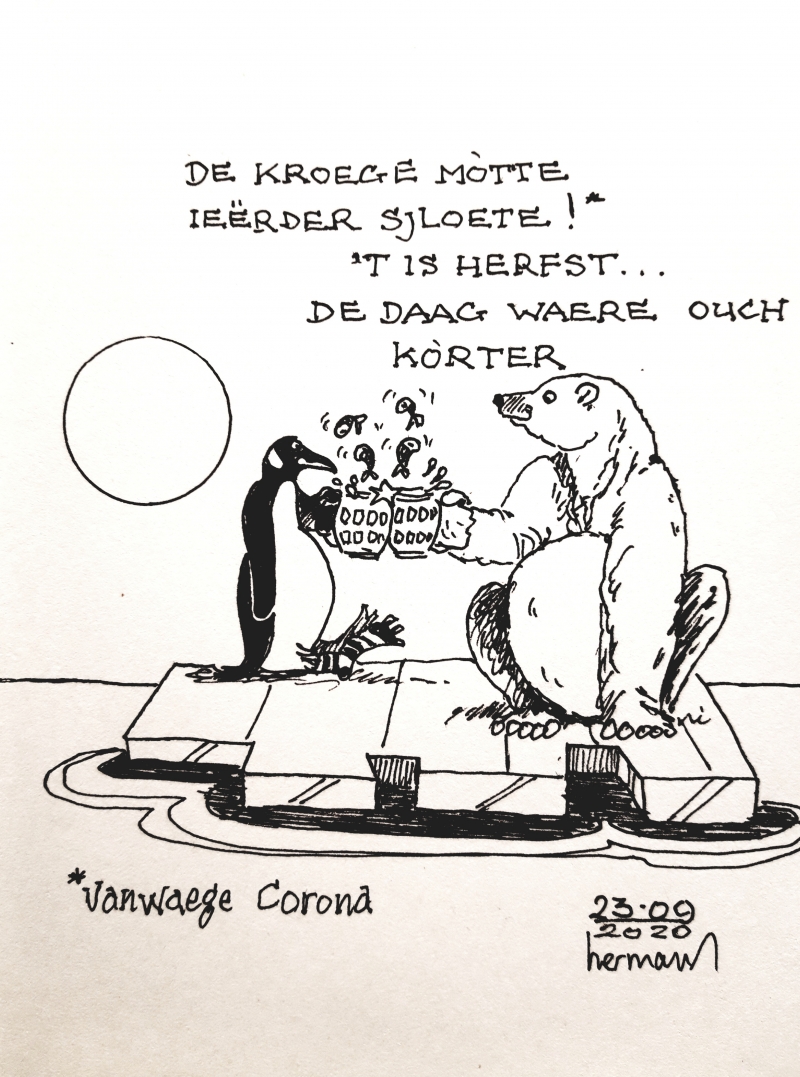 DE KROEGE MÒTTE
IEËRDER SJLOETE!*
'T IS HERFST...
DE DAAG WAERE OUCH
KÒRTER
*Vanwaege Corona
23·09
2020
hermans